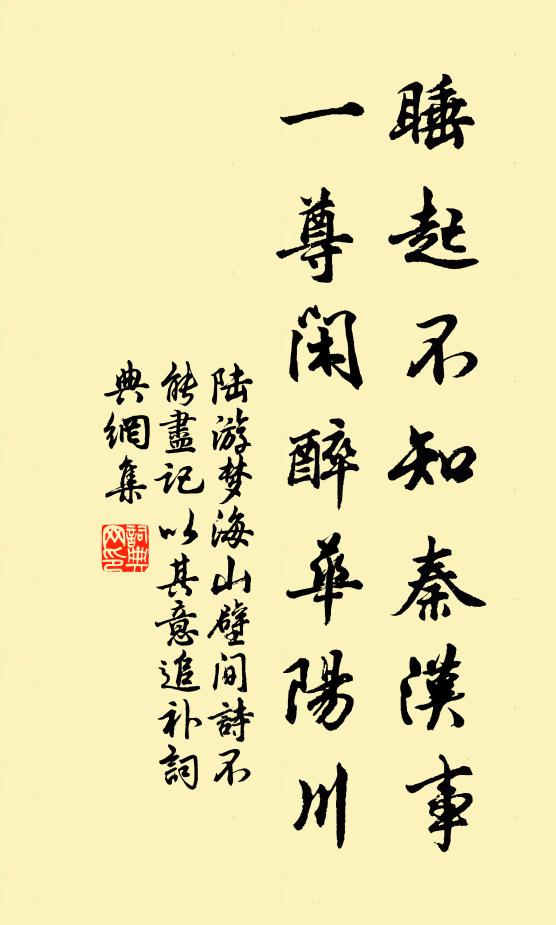 睡起不知秦漢事
一尊閑醉華陽川
陆游梦海山壁间詩不
能盡记以其意追补詞
典網集
詞典網印